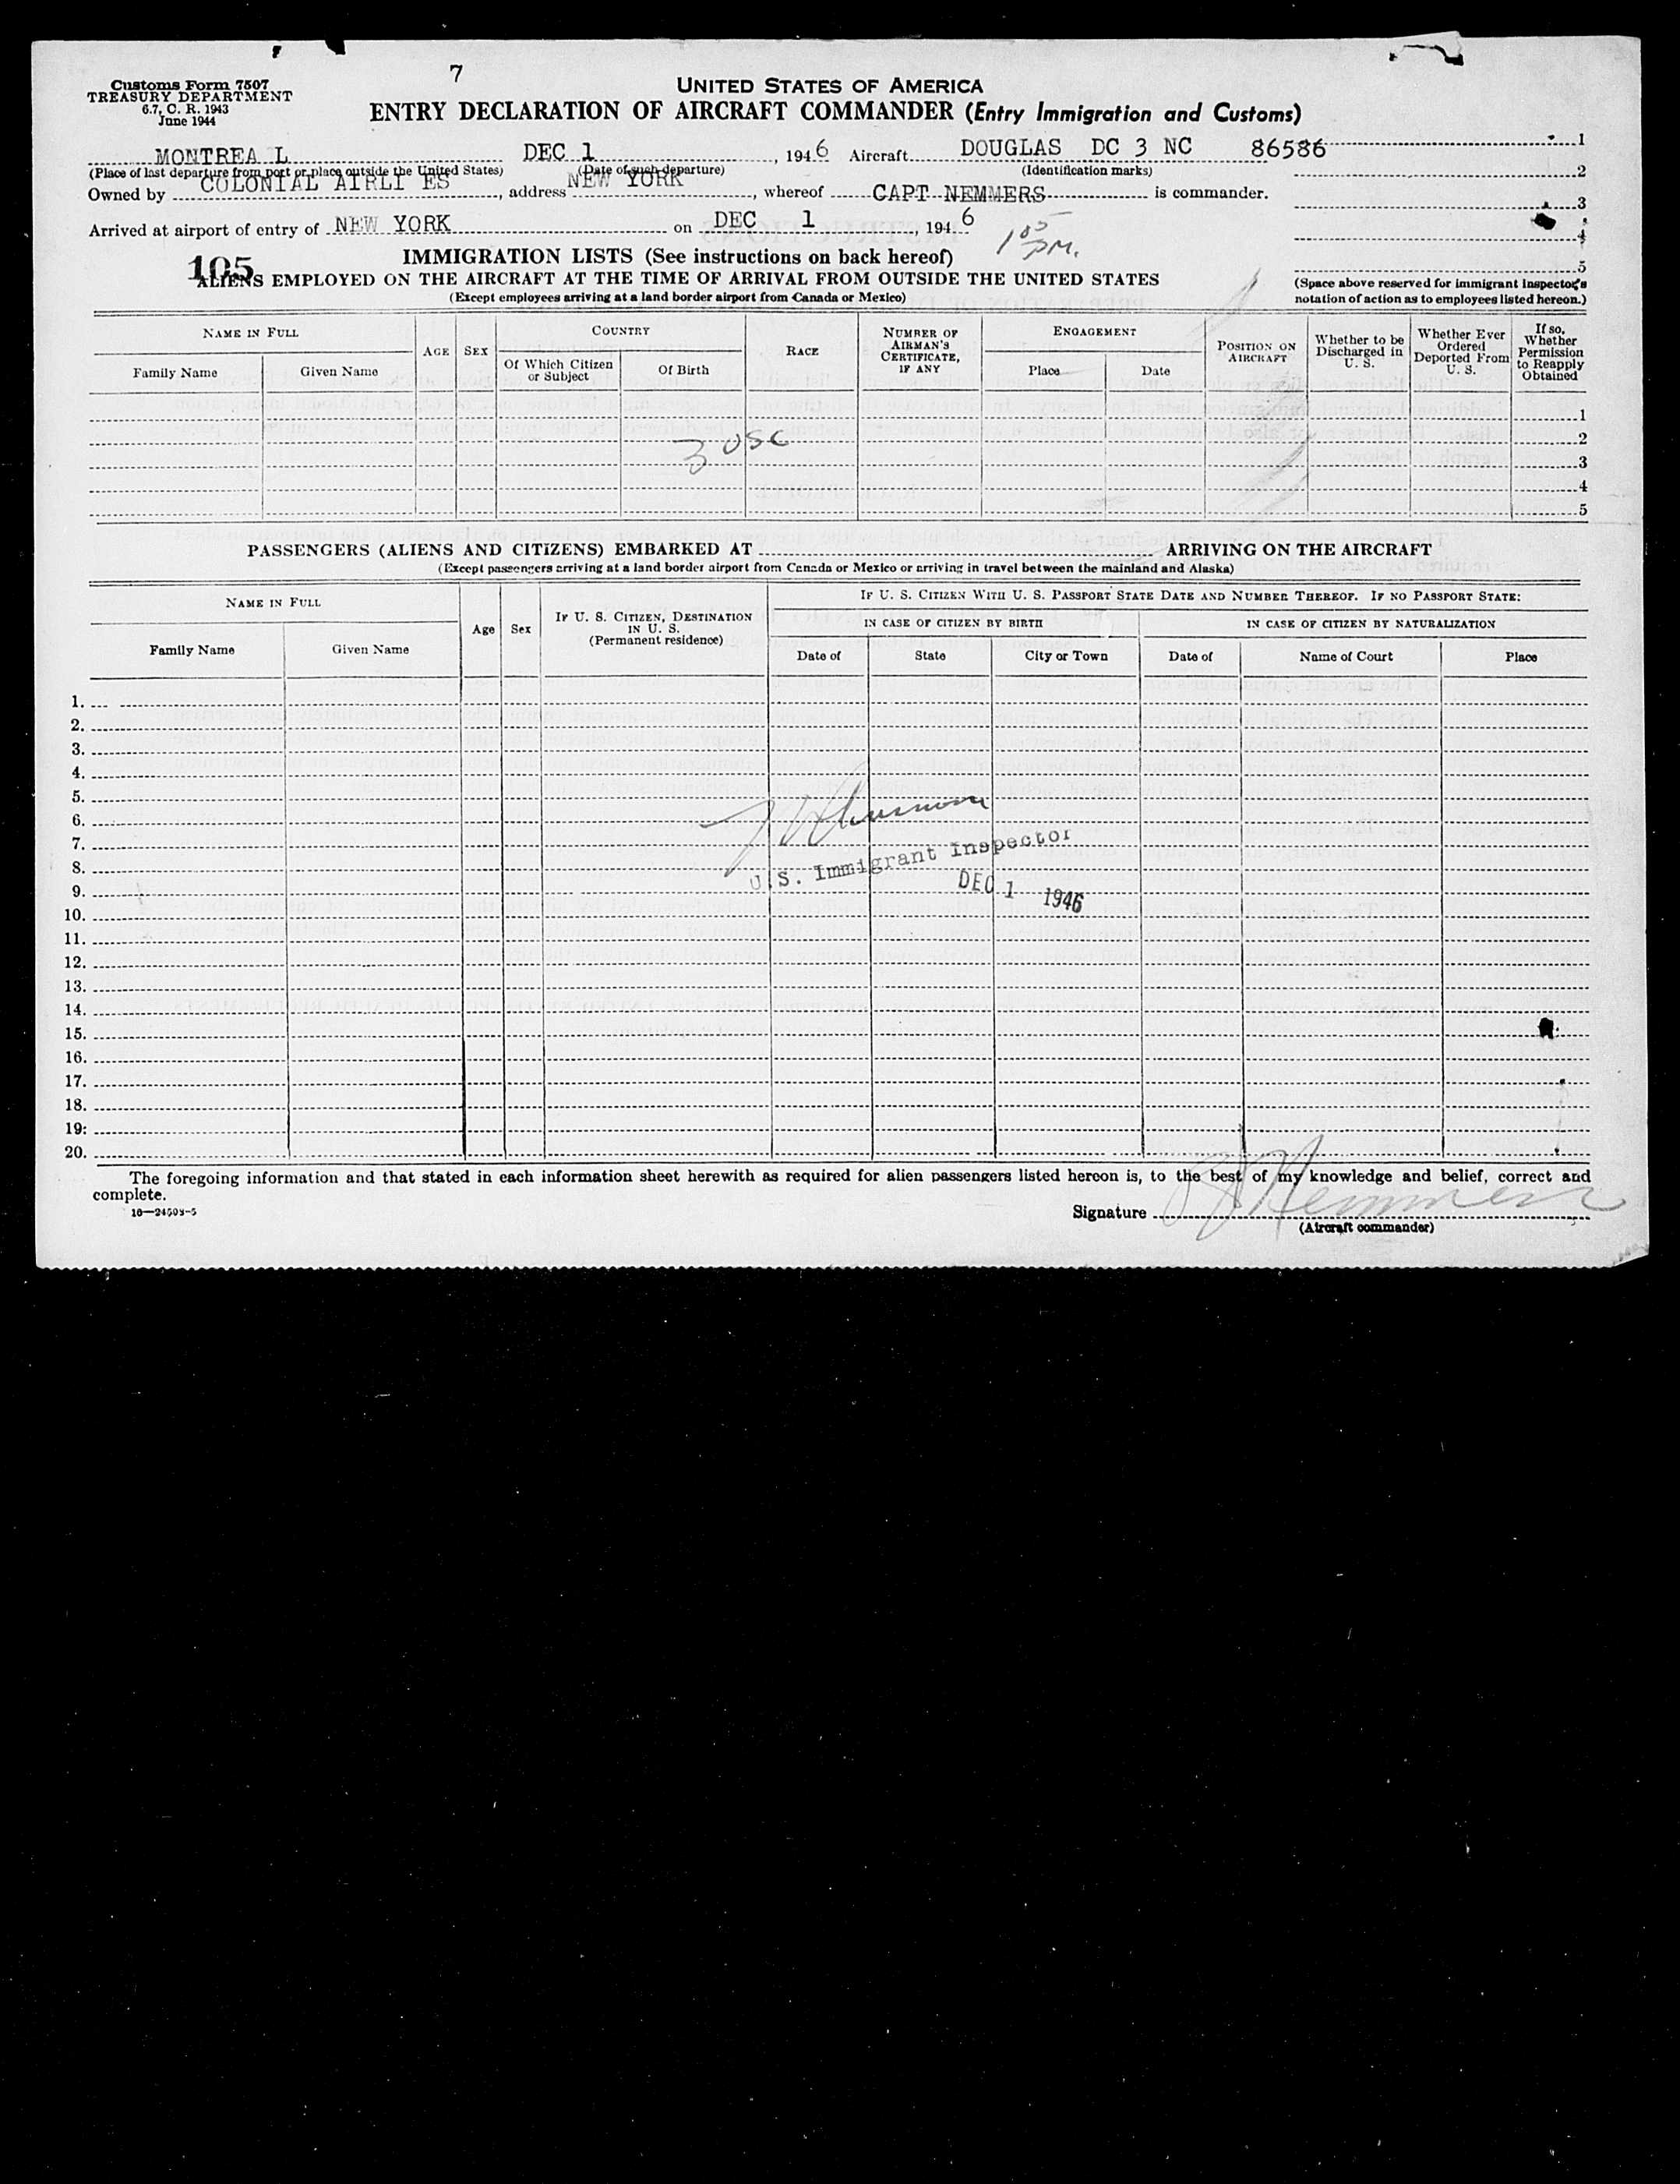 7
Customs Form 7507
TREASURY DEPARTMENT
6.7, C. R. 1943
June 1944
UNITED STATES OF AMERICA
ENTRY DECLARATION OF AIRCRAFT COMMANDER (Entry Immigration and Customs)
MONTREA L DEC 1, 1946 Aircraft DOUGLAS DC 3 NC 86586
(Place of last departure from port or place outside the United States) (Date of such departure) (Identification marks)
Owned by COLONIAL AIRLI ES, address NEW YORK, whereof CAPT NEMMERS is commander.
Arrived at airport of entry of NEW YORK on DEC 1, 1946 1 05 PM.
1
2
3
4
5
(Space above reserved for immigrant inspector's
notation of action as to employees listed hereon.)
105
IMMIGRATION LISTS (See instructions on back hereof)
ALIENS EMPLOYED ON THE AIRCRAFT AT THE TIME OF ARRIVAL FROM OUTSIDE THE UNITED STATES
(Except employees arriving at a land border airport from Canada or Mexico)
NAME IN FULL
Family Name
Given Name
AGE
SEX
COUNTRY
Of Which Citizen or Subject
Of Birth
RACE
NUMBER OF AIRMAN'S CERTIFICATE, IF ANY
ENGAGEMENT
Place
Date
POSITION ON AIRCRAFT
Whether to be Discharged in U. S.
Whether Ever Ordered Deported From U. S.
If so, Whether Permission to Reapply Obtained
1
2
3
4
5
3 USC
PASSENGERS (ALIENS AND CITIZENS) EMBARKED AT ARRIVING ON THE AIRCRAFT
(Except passengers arriving at a land border airport from Canada or Mexico or arriving in travel between the mainland and Alaska)
NAME IN FULL
Family Name
Given Name
Age
Sex
IF U. S. CITIZEN, DESTINATION IN U. S.
(Permanent residence)
IF U. S. CITIZEN WITH U. S. PASSPORT STATE DATE AND NUMBER THEREOF. IF NO PASSPORT STATE:
IN CASE OF CITIZEN BY BIRTH
Date of
State
City or Town
IN CASE OF CITIZEN BY NATURALIZATION
Date of
Name of Court
Place
1.
2.
3.
4.
5.
6.
7.
8.
9.
10.
11.
12.
13.
14.
15.
16.
17.
18.
19.
20.
U.S. Immigrant Inspector
DEC 1 1946
The foregoing information and that stated in each information sheet herewith as required for alien passengers listed hereon is, to the best of my knowledge and belief, correct and
complete.
16—24503-5
Signature Nemmers
(Aircraft commander)